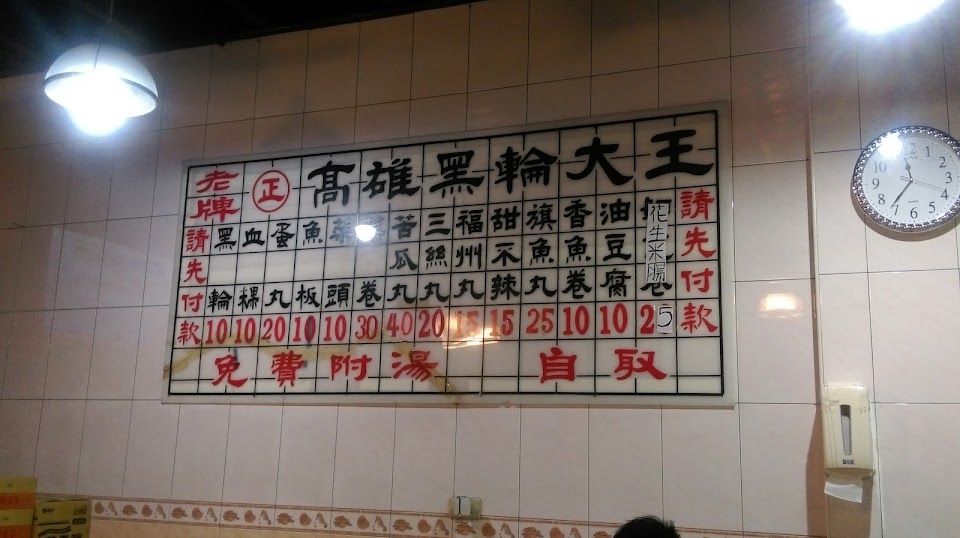 老牌
正
高雄黑輪大王
請先付款
黑輪 10
血粿 10
蛋丸 20
魚板 10
菜頭 10
卷 30
苦瓜丸 40
三絲丸 20
福州丸 15
甜不辣 15
旗魚丸 25
香魚卷 10
油豆腐 10
花生米腸 25
請先付款
免費附湯 自取